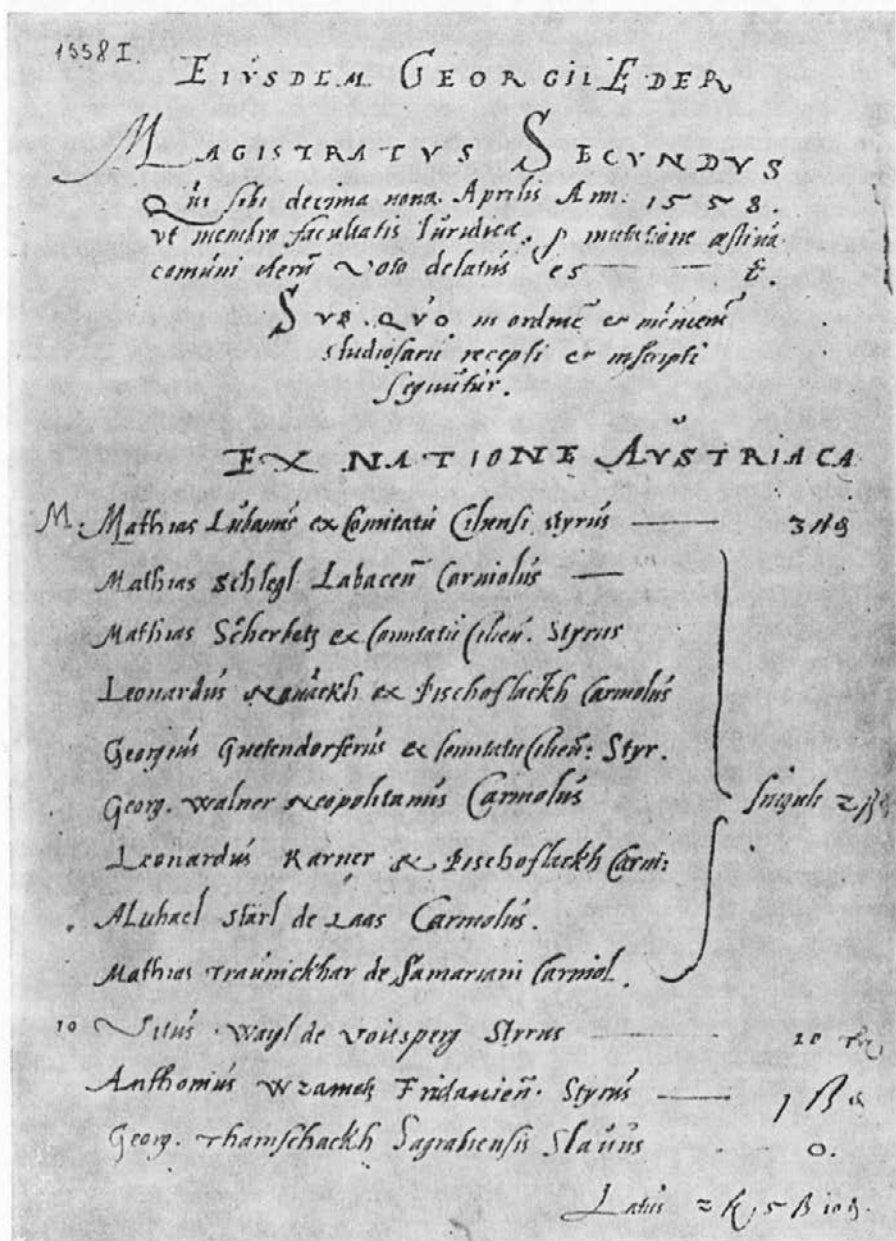 1558 I.
EIVSDEM GEORGII EDER
MAGISTRATVS SECVNDVS
Qui sibi decima nona. Aprilis Ann: 1558.
vt membro facultatis Iuridicæ, p mutatione æstiua
comuni voto delatus es
SVB. QVO in ordinē
studiosorū recepti et inscripti
sequuntur.
EX NATIONE AVSTRIACA
M. Mathias Lubanus ex Comitatu Cilensi styrus — 3
Mathias Schlegl Labacen̄ Carniolus —
Mathias Scherbetz ex Comitatu Cilien̄. Styrus
Leonardus Nouackh ex Bischoflackh Carniolus
Georgius Guetendorferus ex Comitatu Cilien̄: Styr.
Georg. Walner Neopolitanus Carniolus
Singuli 2 ß
Leonardus Karner ex Bischoflackh Carni:
Michael Stärl de Laas Carniolus.
Mathias Traunickhar de Samariani Carniol.
10 Vitus Wayl de Voitsperg Styrus — 20
Anthonius Wzametz Fridauien̄. Styrus — 1 ß
Georg. Thamschackh Sagrabiensis Slauus 0.
Latus 2 5 ß 10